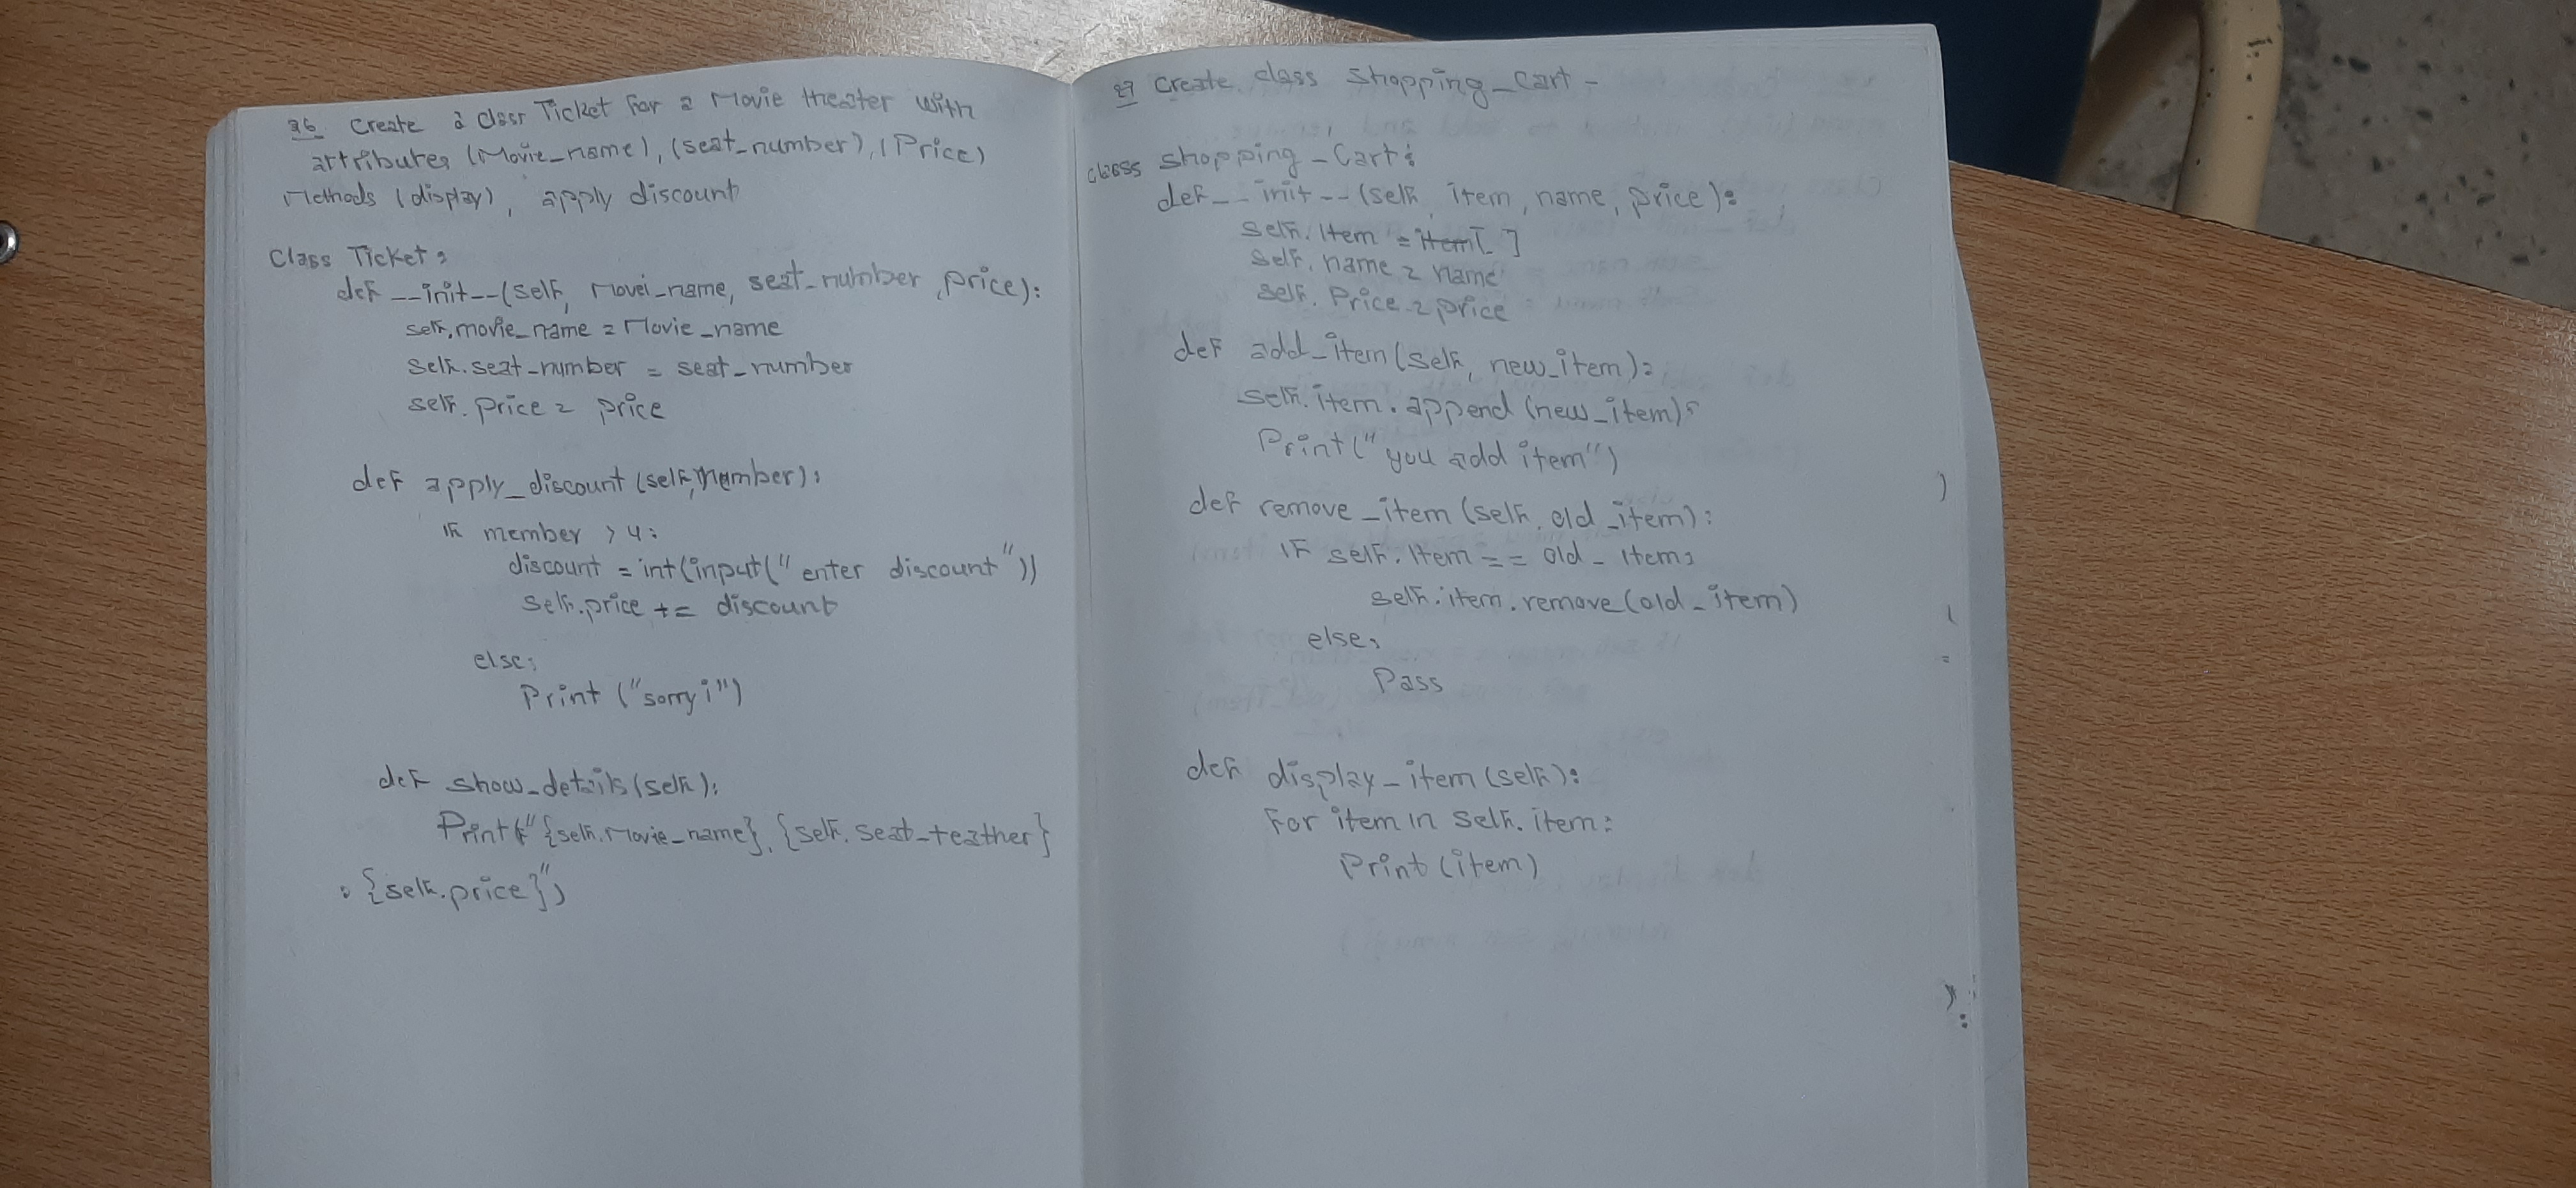 26 Create a class Ticket for a Movie theater with
attributes (Movie_name), (seat_number), (Price)
Methods (display), apply discount
Class Ticket:
def __init__(self, Movei_name, seat_number, price):
self.movie_name = Movie_name
self.seat_number = seat_number
self.price = price
def apply_discount(self, member):
if member > 4:
discount = int(input("enter discount"))
self.price += discount
else:
print ("sorry!")
def show_details(self):
Print(f"{self.Movie_name}, {self.seat_teather}
, {self.price}")
27 Create class Shopping_Cart -
class Shopping_Cart:
def __init__(self, item, name, price):
self.item = []
self.name = name
self.price = price
def add_item(self, new_item):
self.item.append(new_item):
Print("you add item")
def remove_item(self, old_item):
if self.item == old_item:
self.item.remove_(old_item)
else:
Pass
def display_item(self):
for item in self.item:
print(item)